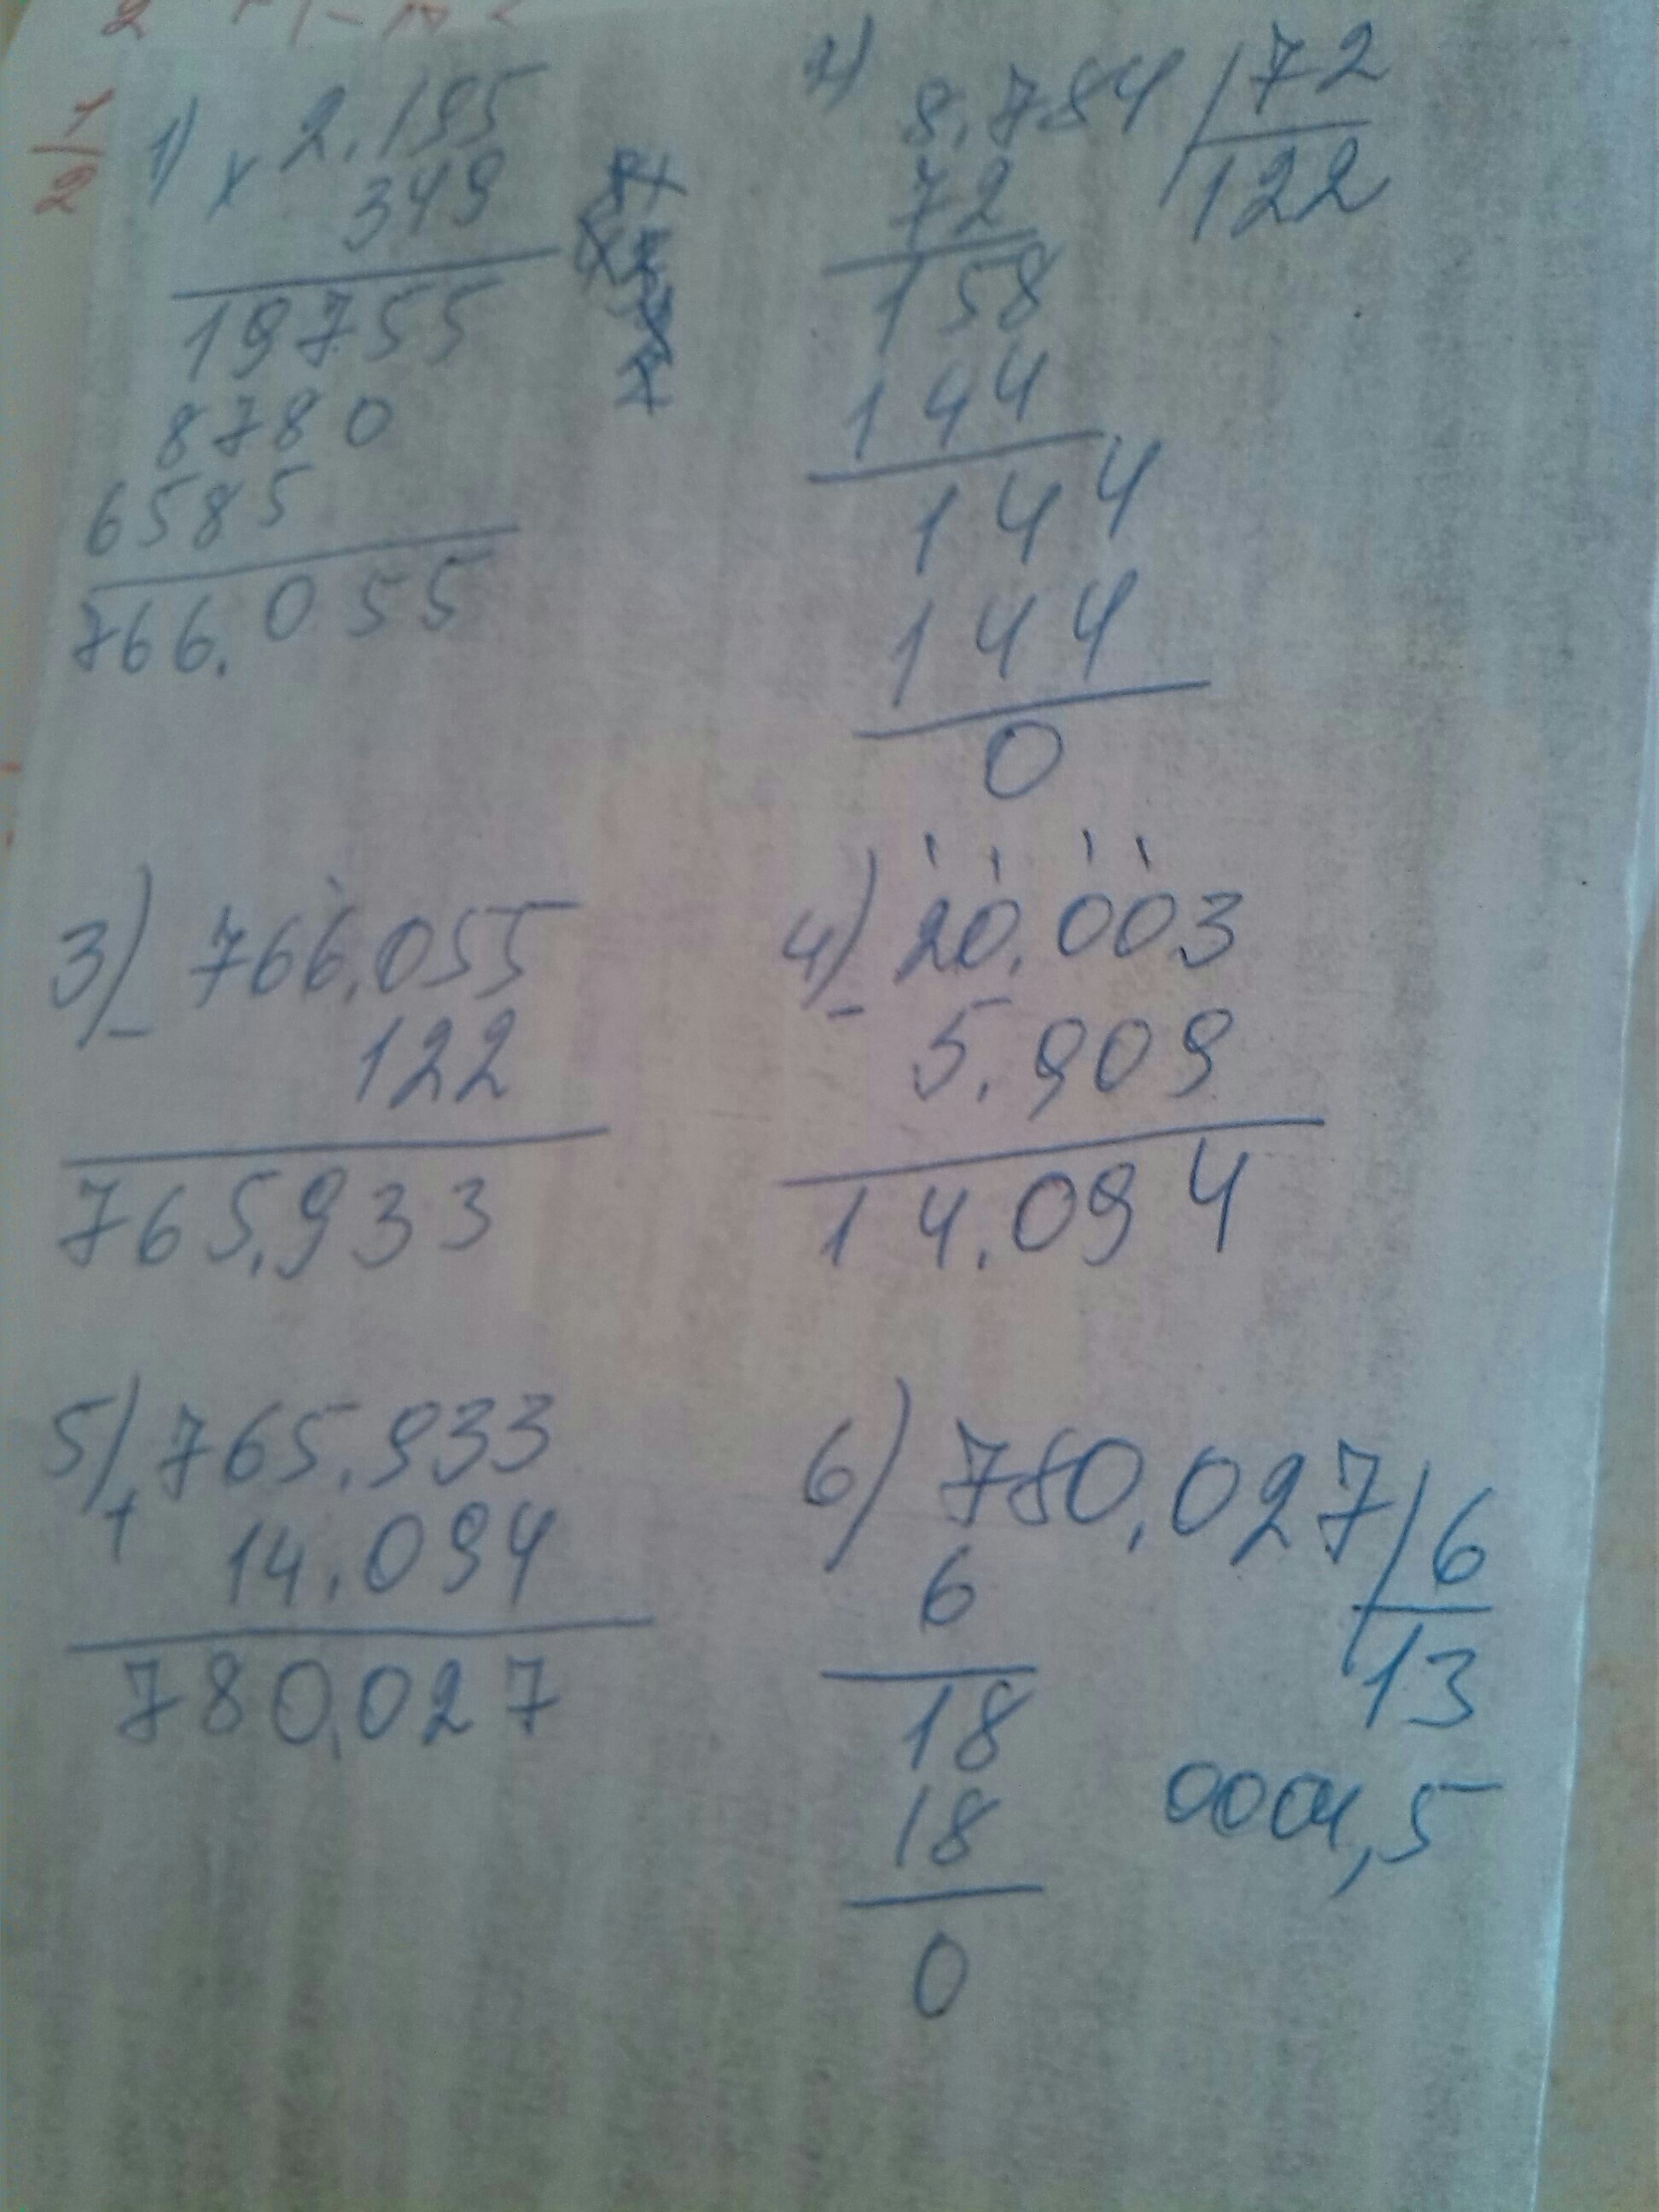 1/2
1) × 2.195
349
19755
8780
6585
766.055
2) 8.784 | 72
72 122
158
144
144
144
0
3) - 766.055
122
765.933
4) - 20.003
5.909
14.094
5) + 765.933
14.094
780.027
6) 780.027 | 6
6 13
18 0004,5
18
0